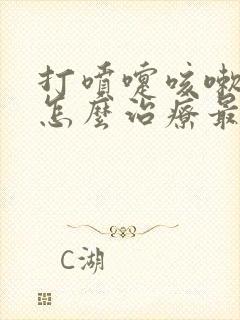 打噴嚏咳嗽
怎麼治療最
C湖